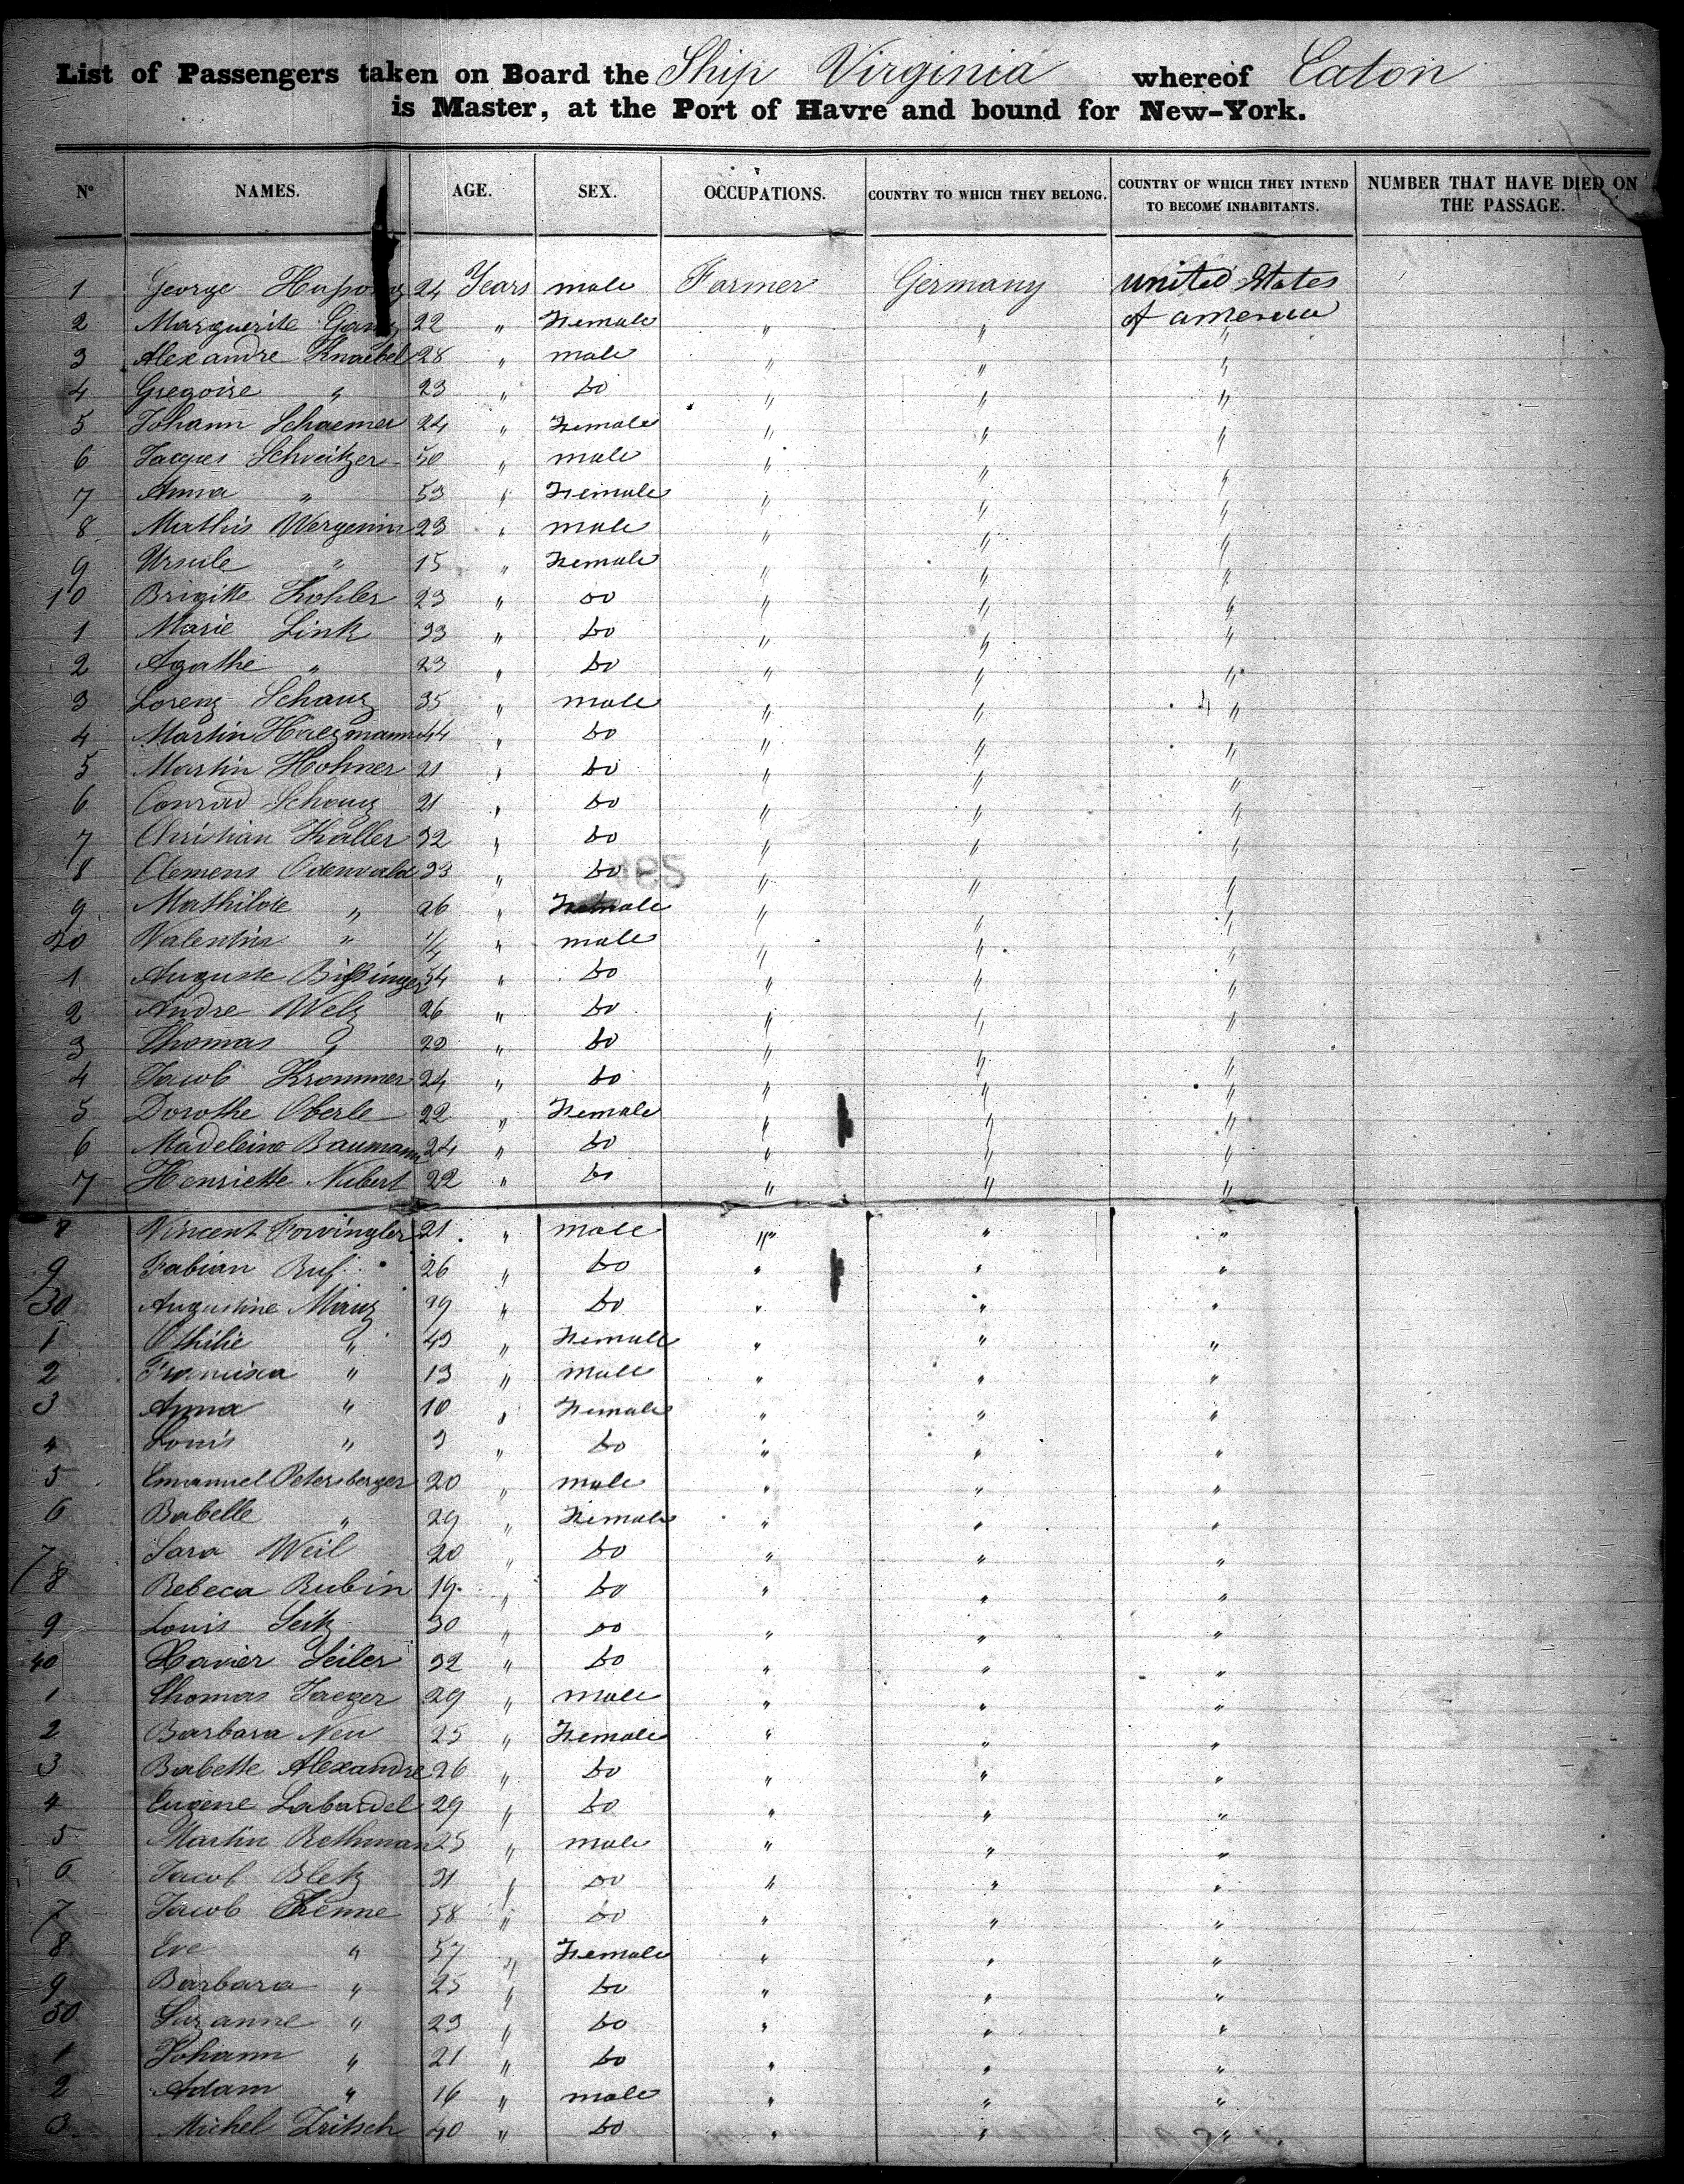 List of Passengers taken on Board the Ship Virginia whereof Eaton
is Master, at the Port of Havre and bound for New-York.
N° NAMES. AGE. SEX. OCCUPATIONS. COUNTRY TO WHICH THEY BELONG. COUNTRY OF WHICH THEY INTEND TO BECOME INHABITANTS. NUMBER THAT HAVE DIED ON THE PASSAGE.
1 George 24 Years male Farmer Germany United States
2 Marguerite 22 " Female " " of america "
3 Alexandre Knaebel 28 " male " " "
4 Gregoire " 23 " Do " " "
5 Johann Schaemer 24 " Female " " "
6 Jacques Schveitzer 50 " male " " "
7 Anna " 53 " Female " " "
8 Mathis 23 " male " " "
9 Ursule " 15 " Female " " "
10 Brigitte Kohler 23 " Do " " "
1 Marie Link 33 " Do " " "
2 Agathe " 23 " Do " " "
3 Lorenz Schauz 35 " male " " "
4 Martin 44 " Do " " "
5 Martin Hohner 21 " Do " " "
6 Conrad Schauz 21 " Do " " "
7 Christian Haller 32 " Do " " "
8 Clemens Odenvald 33 " Do " " "
9 Mathilde " 26 " Female " " "
20 Valentin " 1/4 " male " " "
1 Auguste Bissinger 54 " Do " " "
2 Andre Welz 26 " Do " " "
3 Thomas " " Do " " "
4 Jacob Krommer 24 " Do " " "
5 Dorothe Oberle 22 " Female " " "
6 Madeleine Baumann 24 " Do " " "
7 Henriette Nubert 22 " Do " " "
8 Vincent 21 " male " " "
9 Fabian Ruf 26 " Do " " "
30 Augustine Mauz 39 " Do " " "
1 Othilie " 43 " Female " " "
2 Francisca " 13 " male " " "
3 Anna " 10 " Female " " "
4 Louis " 3 " Do " " "
5 Emanuel Petersberger 20 " male " " "
6 Babelle " 29 " Female " " "
7 Sara Weil 20 " Do " " "
8 Rebeca Rubin 19 " Do " " "
9 Louis Seitz 30 " Do " " "
40 Xavier Seiler 32 " Do " " "
1 Thomas Jaeger 29 " male " " "
2 Barbara Neu 25 " Female " " "
3 Babette Alexandre 26 " Do " " "
4 Eugene Labardel 29 " Do " " "
5 Martin Rethman 25 " male " " "
6 Jacob Bletz 31 " Do " " "
7 Jacob 58 " Do " " "
8 Eve " 57 " Female " " "
9 Barbara " 25 " Do " " "
50 Suzanne " 23 " Do " " "
1 Johann " 21 " Do " " "
2 Adam " 16 " male " " "
3 Michel 40 " Do " " "